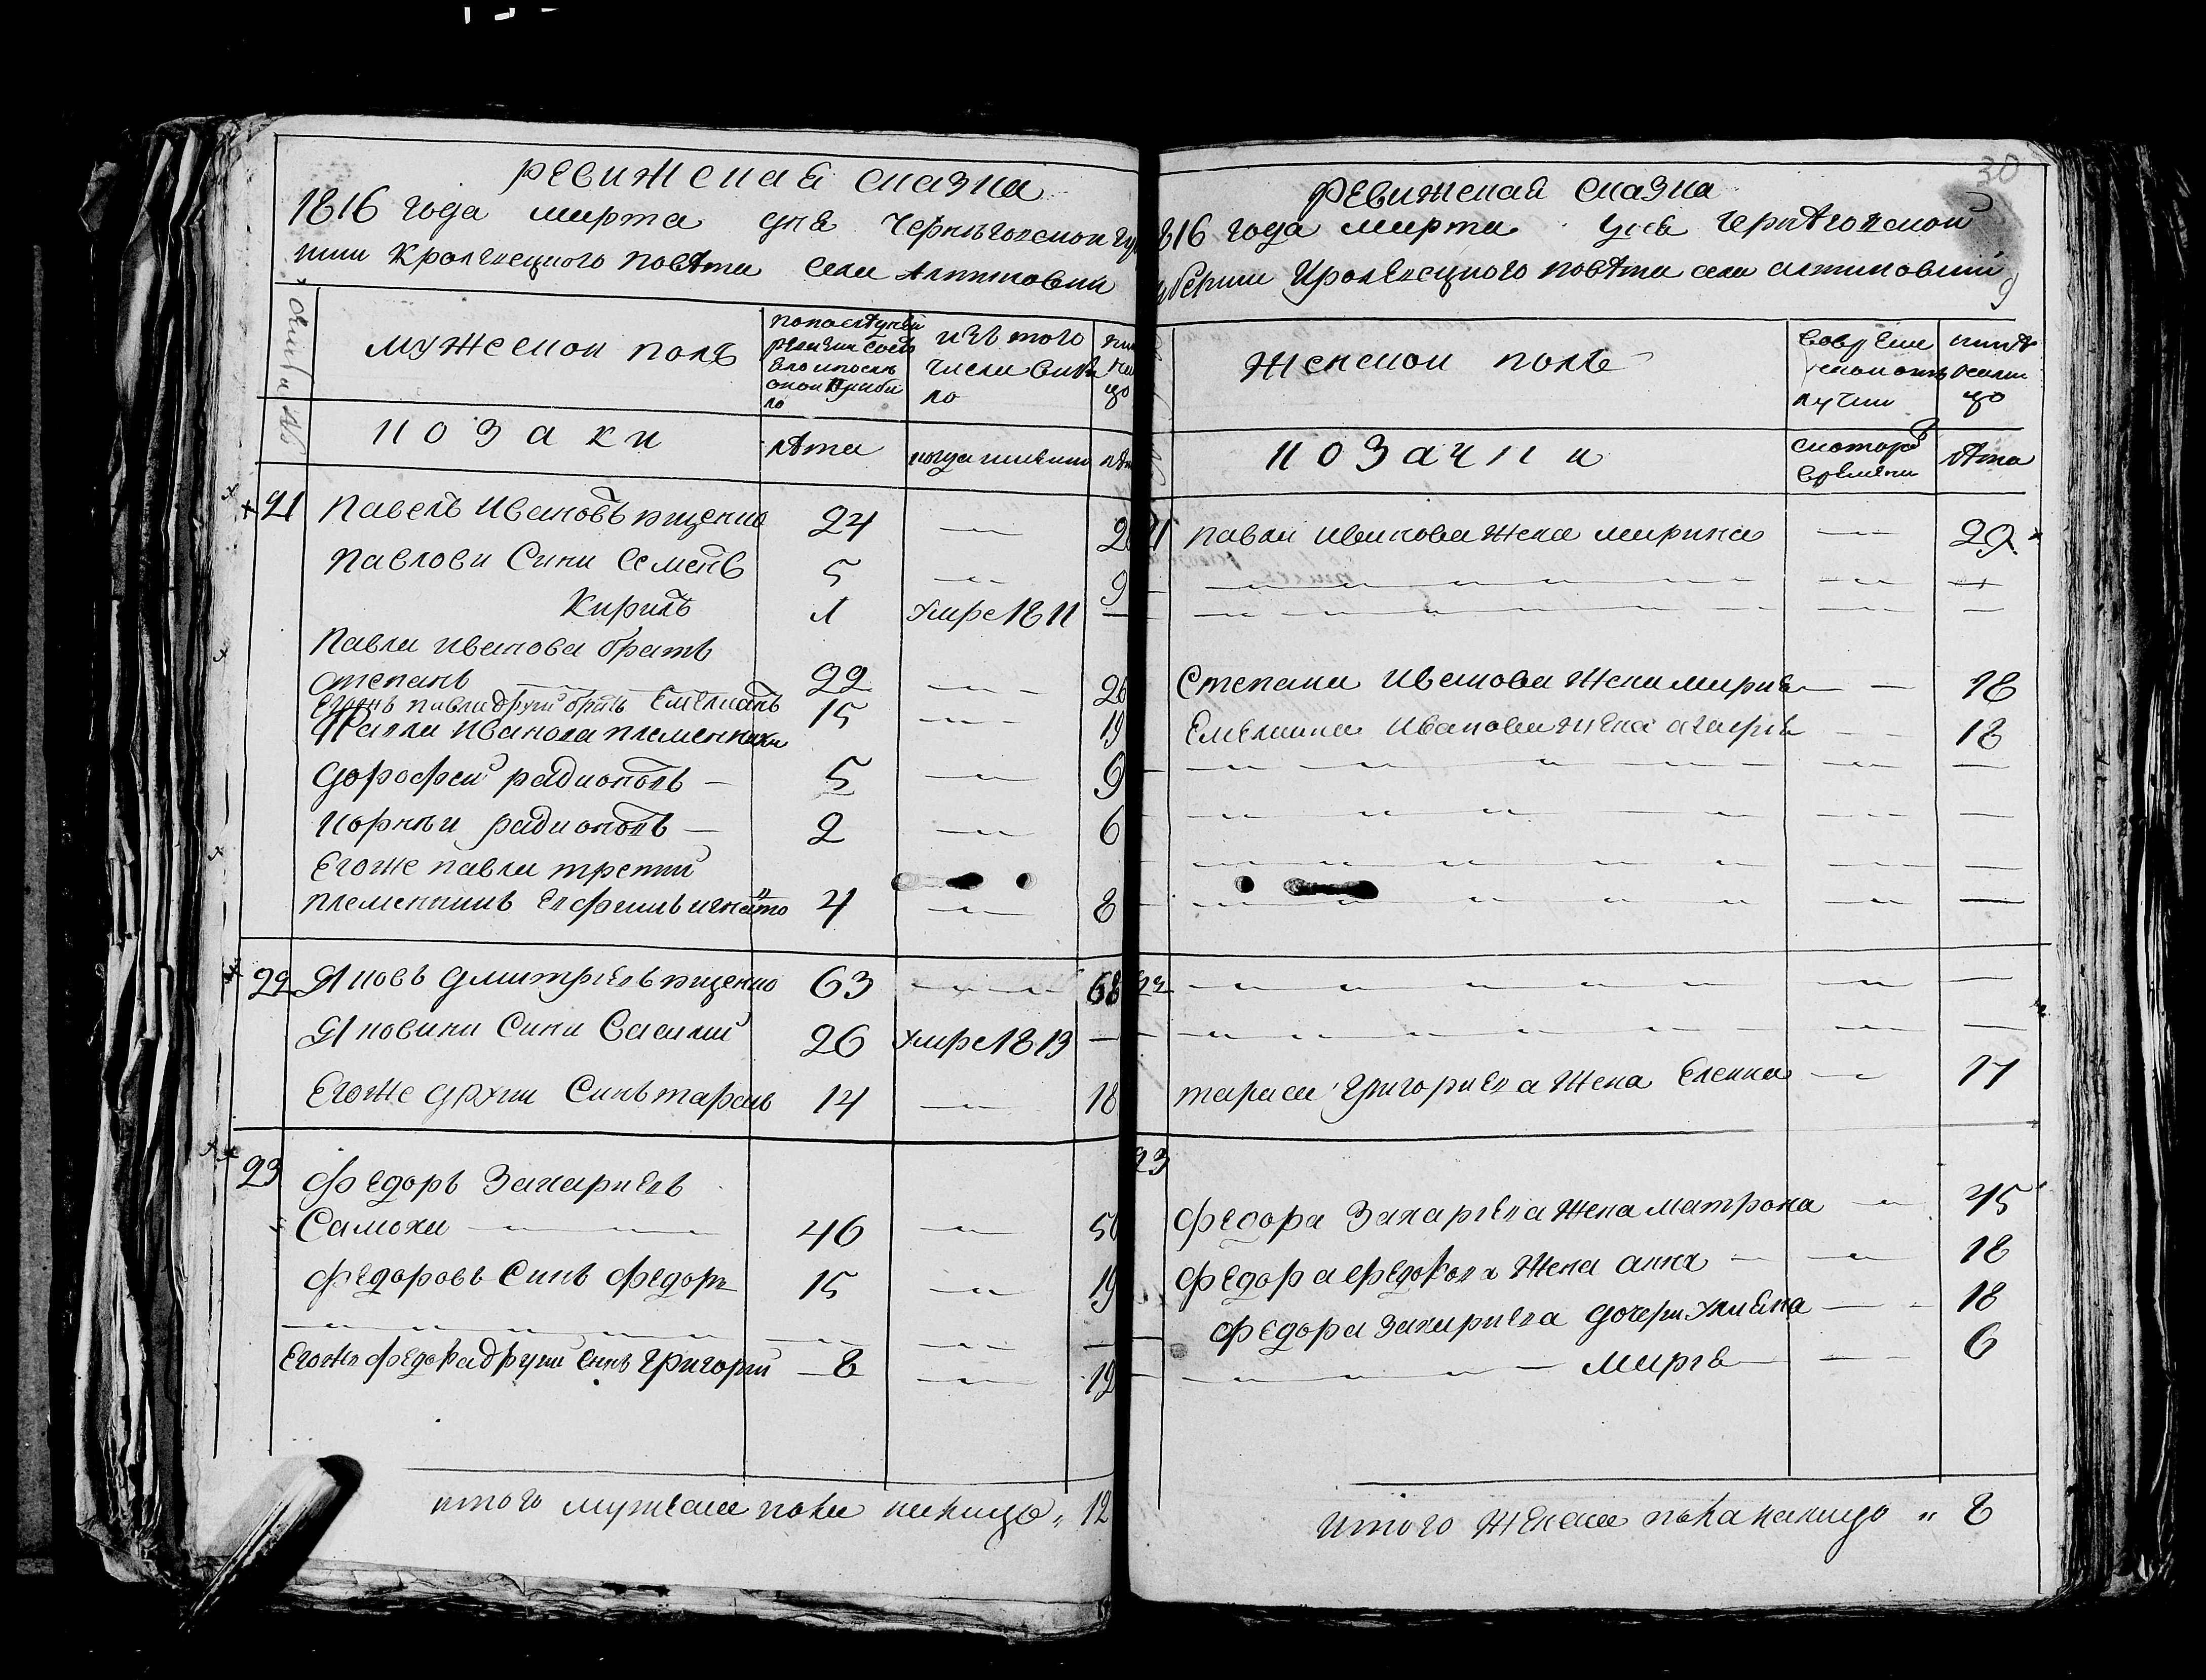 ревижская сказка
1816 года марта дня Черниговской гу
нии Кролевецкого повѣта села Алтиновки
мужеской полъ
по последней ревизии состояло и после оной прибыло
изъ того числа выбыло
козаки
лѣта
когда именно
21 Павелъ Ивановъ ященко 24 — 2
Павлови Сини Семенъ 5 — 9
Кирилъ 1 умре 1811 —
Павла Иванова братъ
Степанъ — 22 — 26
Егожъ павла други братъ Емелианъ 15 — 19
Павла Иванова племенники
Дорофей радионовъ — 5 — 9
Корнѣи радионовъ — 2 — 6
Егоже павла третий
племенникъ Евфимъ игнато 4 — 8
22 Яковъ Дмитриевъ ященко 63 — 68
Яковини Сини Василий 26 умре 1813 —
Егоже други Синъ тарасъ 14 — 18
23 Федоръ Захариевъ
Самоха — 46 — 50
Федоровъ Синъ Федоръ 15 — 19
Егоже Федора други Синъ Григорий — 8 — 12
итого мужеска пола налицо " 12
30
Ревижская сказка
1816 года марта дня Чернѣговской
губернии Кролевецкого повѣта села алтиновки
9
женской полъ
во временной отлучки
нинѣ налицо
козачки
с которого времени
лѣта
21 павла иванова жена марина — 29
Степана Иванова жена мария — 18
Емелиана Иванова жена агафия — 18
22
тараса Григориева жена Еленна — 17
23
Федора Захариева жена матрона — 45
Федора Федорова жена анна — 18
Федора захариева дочери улияна — 18
— мария — 6
итого женска пола налицо " 8